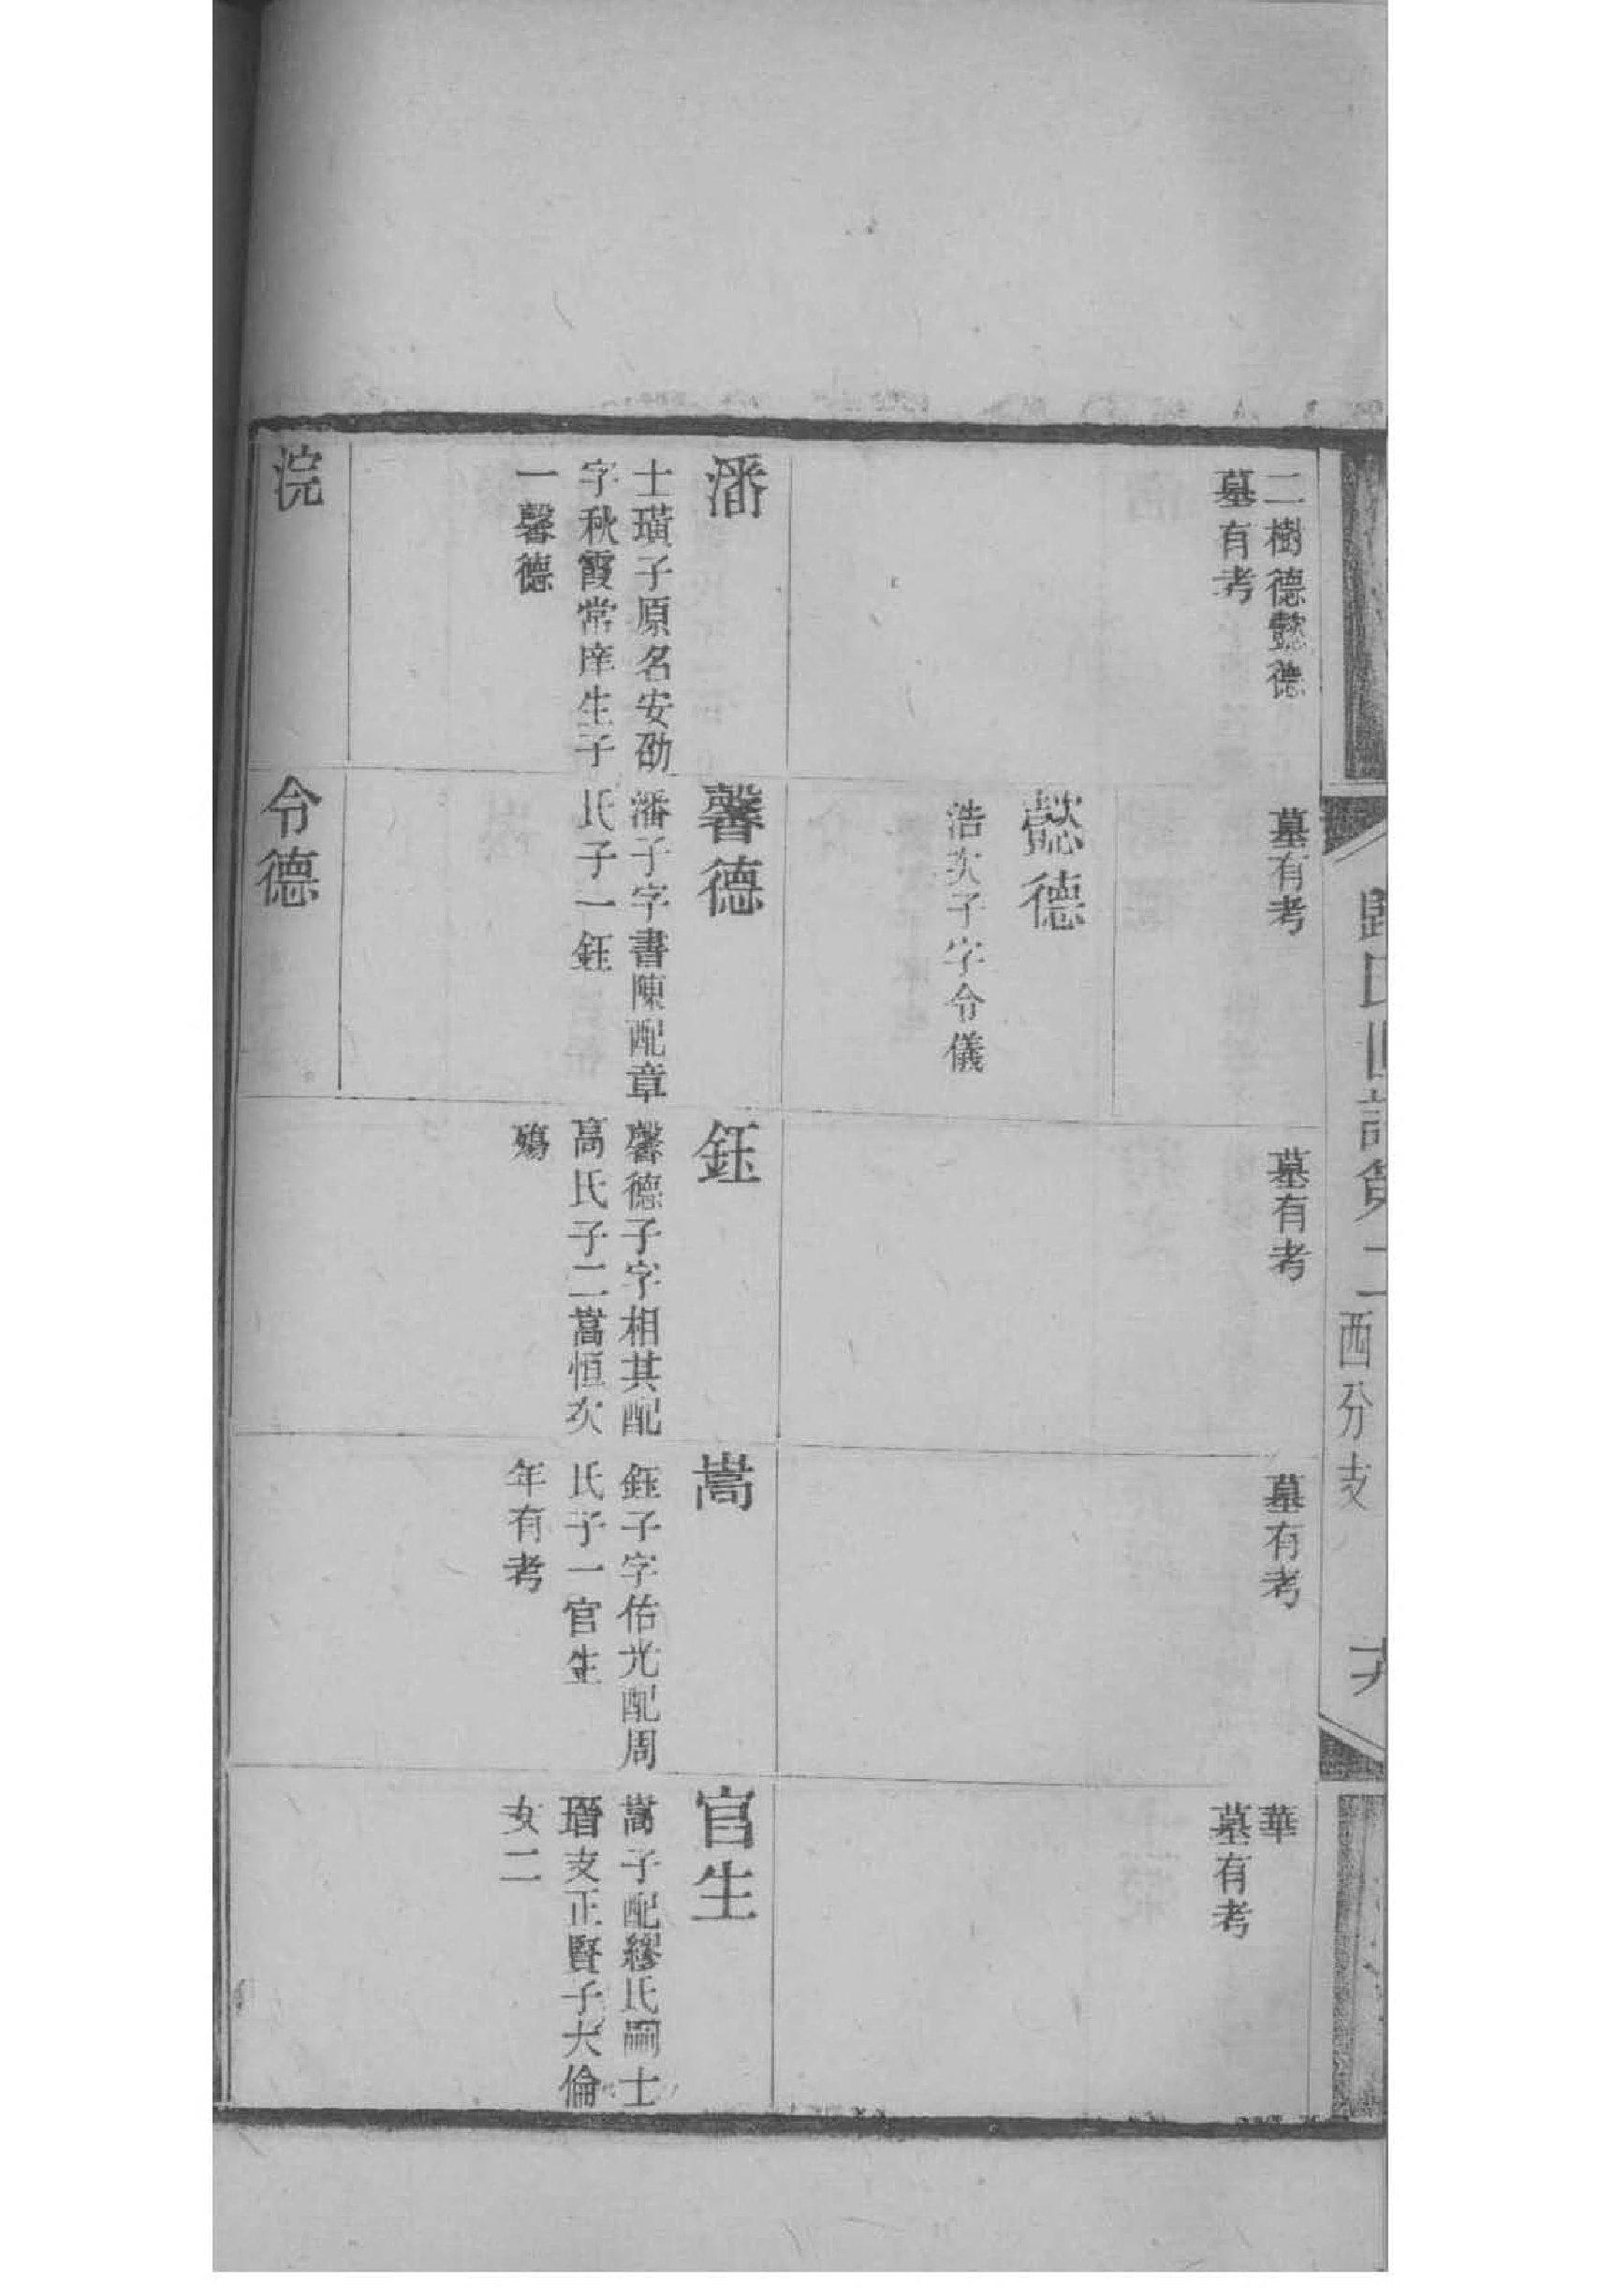 歸氏世譜第二 西分支
二樹德懿德
墓有考
墓有考
墓有考
墓有考
華
墓有考
懿德
浩次子字令儀
潘
士璜子原名安劭
字秋霞常庠生子
一馨德
馨德
潘子字書陳配章
氏子一鈺
鈺
馨德子字相其配
高氏子二嵩恒次
殤
嵩
鈺子字佑光配周
氏子一官生
年有考
官生
嵩子配繆氏嗣士
瑨支正賢子大倫
女二
浣
令德